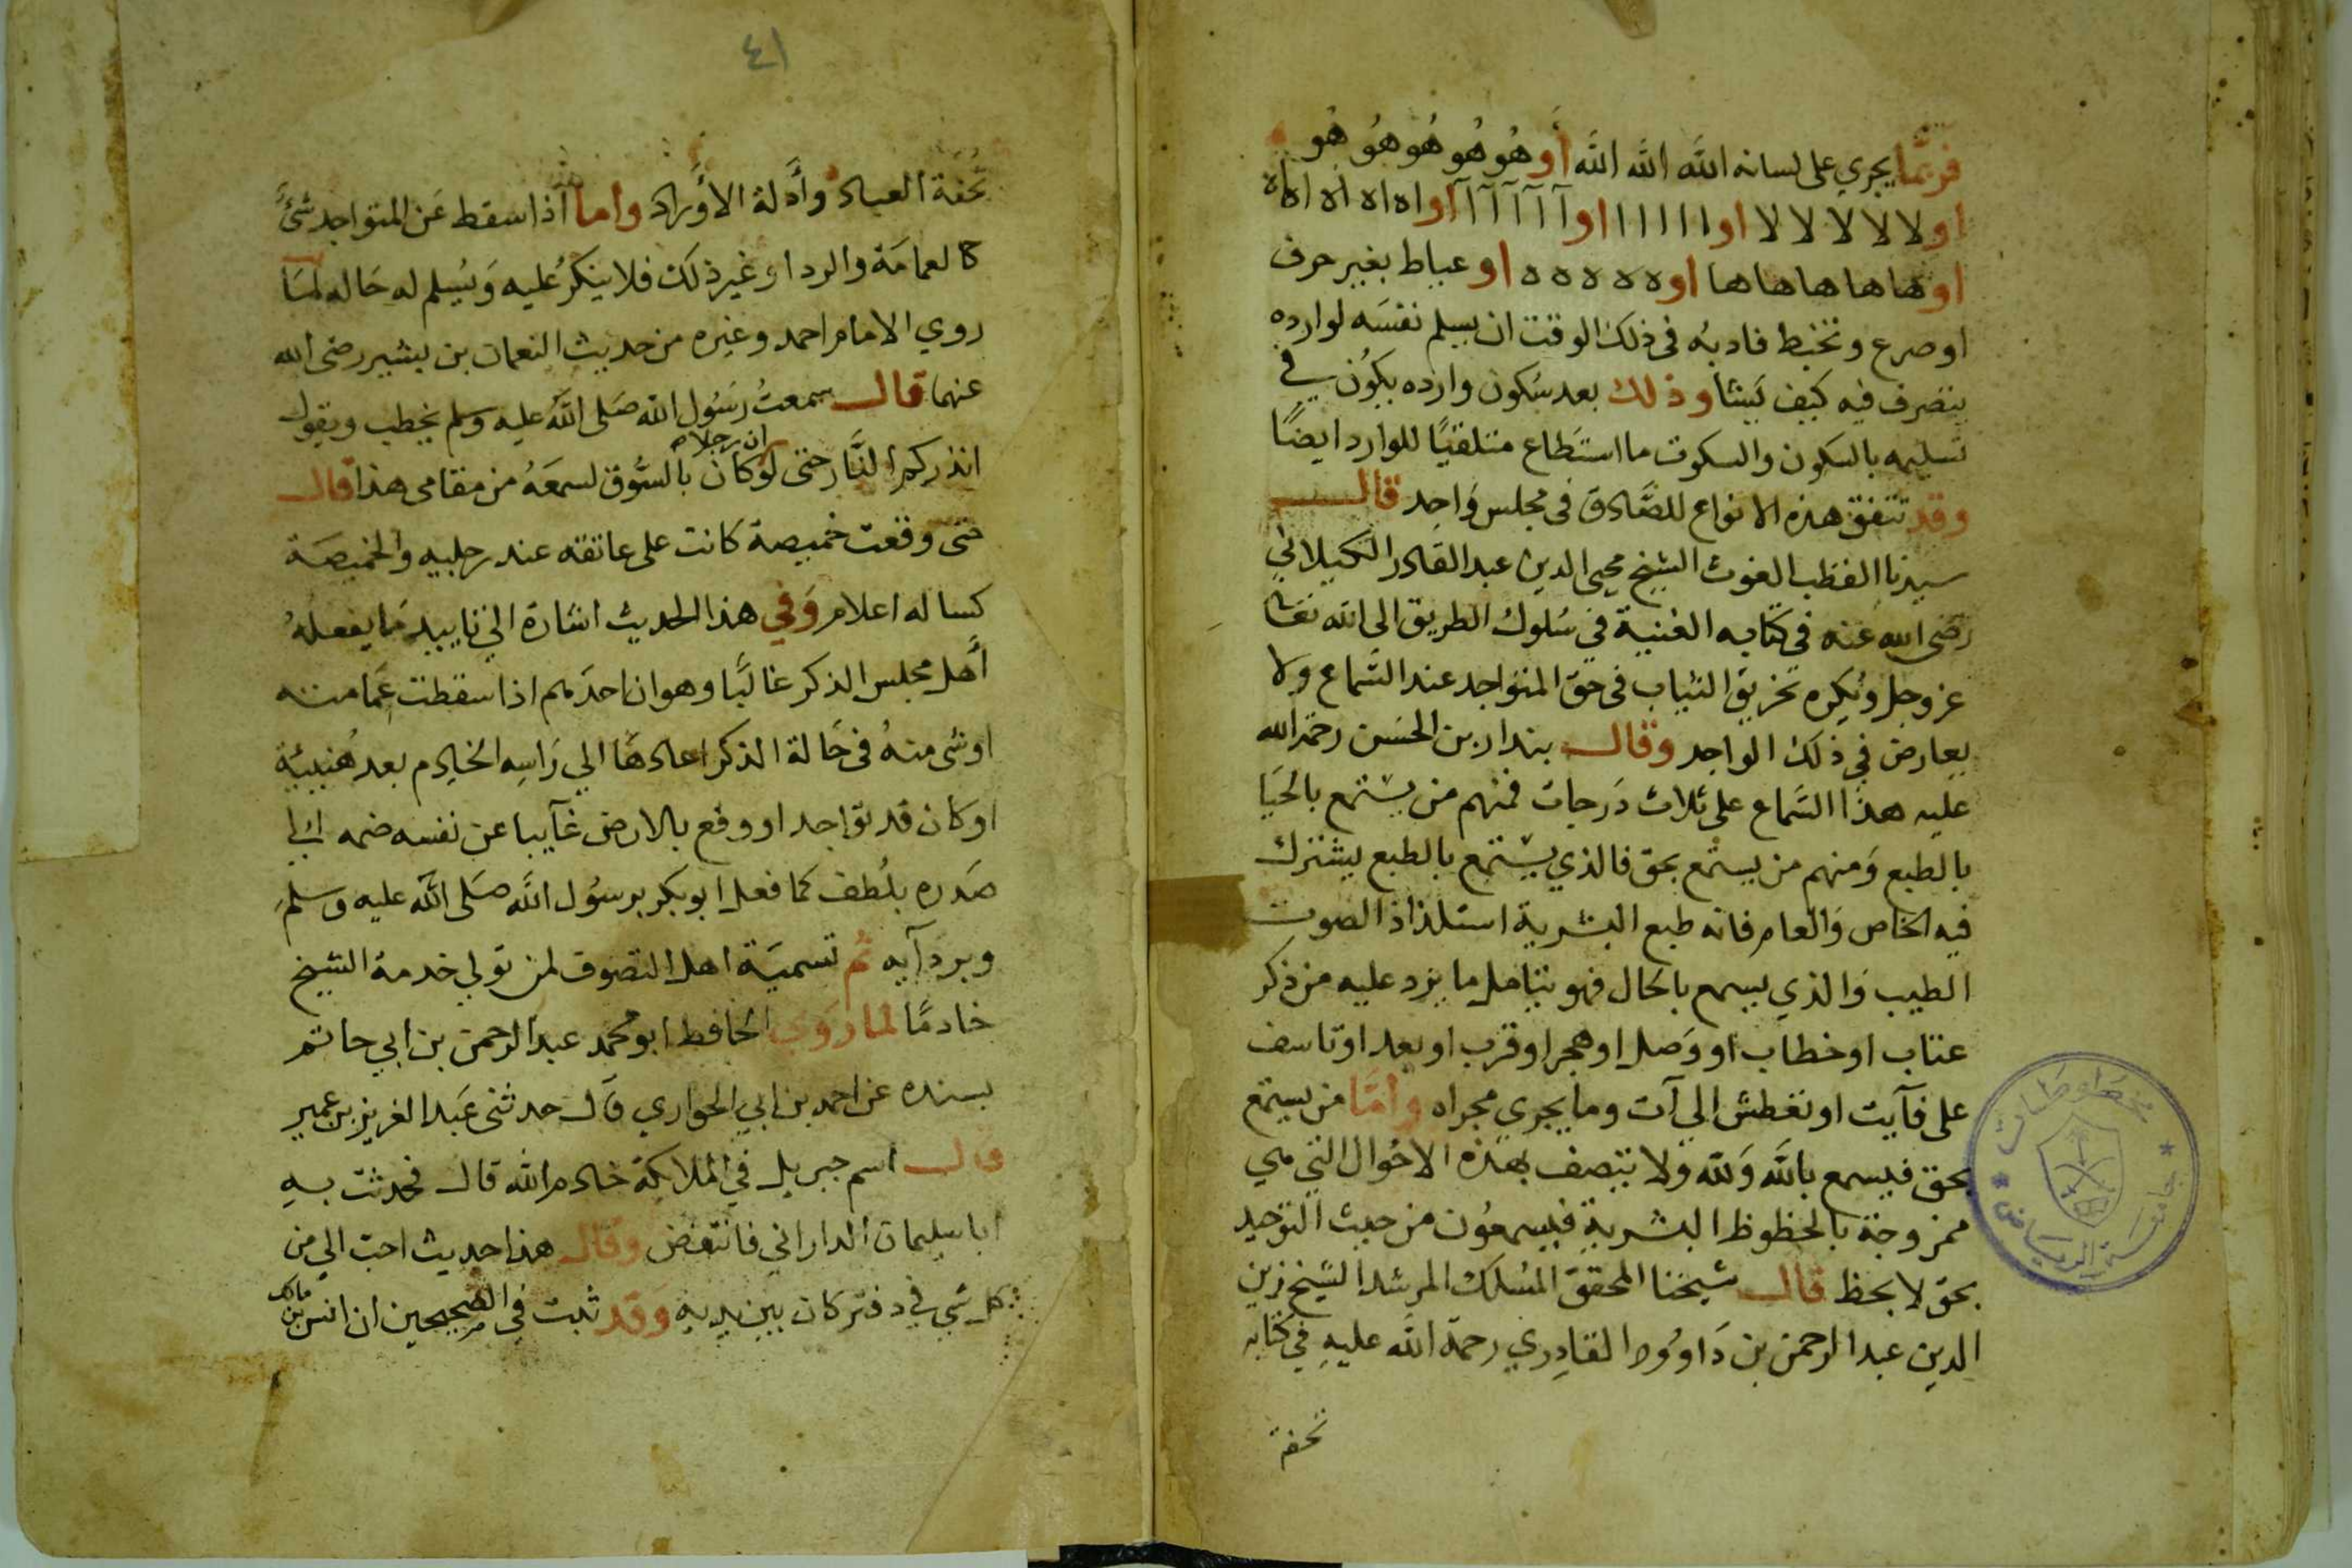 فربَّما يجري على لسانه اللَّه اللَّه اللَّه اللَّه أو هُو هُو هُو هُو هُو
او لا لا لا لا لا او ا ا ا ا ا او آ آ آ آ آ آ او اه اه اه اه اه
او ها ها ها ها ها او ه ه ه ه ه ه او عياط بغير حرف
او صرع وتخبط فادبُه فى ذلك الوقت ان يسلم نفسَه لوارده
يتصرف فيه كيف يَشا وذلك بعد سكون وارده يكوُن في
تسليمه بالسَكون والسكوت ما استَطاع متلقيًا للوارد ايضًا
وقد تتفق هذه الانواع للصَّادق فى مجلس وَاحِد قال
سيدنا القطب الغوث الشيخ محيى الدين عبد القادر الكيلاني
رضى الله عَنه فى كتابه الغنية في سُلوك الطريق الى الله تعَا
عز وجل ويُكره تخريق الثياب فى حَق المتواجد عند السَّماع ولا
يعارض في ذلك الواجد وقال بندار بن الحسَن رحمَة الله
عليه هذا السَّماع على ثلاث دَرجات فمنهم من يستمع بالحَيَا
بالطبع وَمنهم من يستمع بحق فالذي يستمع بالطبع يشترك
فيه الخاص وَالعام فانه طبع البشرية استلذاذ الصوت
الطيب وَالذي يسمع بالحال فهو يتامل ما يرد عليه من ذكر
عتاب او خطاب او وَصل او هجر او قرب او بعد او تاسف
على فآيت او تعطش الي آت وما يجري مجراه وأمَّا من يستمع
بحق فيسمع باللَّه وَللَّه ولا يتصف بهذه الاحوَال التي هي
ممزوجة بالحظوظ البشرية فيسمعُون من حيث التوحيد
بحق لا بحظ قال شيخنا المحقق المُسَلك المرشد الشيخ زين
الدين عبد الرحمن بن دَاووُد القادِري رحمة اللَّه عليهِ في كتابه
تحفة
جامعة الرياض * مخطوطات *
٤١
تُحفَة العباد وأَدلة الأورَاد وأما اذا سقط عَن المتواجد شئ
كالعمامَة والردا او غير ذلك فلا ينكرُ عليه وَيُسلم له حَاله لمَا
روي الامام احمد وغيره من حديث النعمان بن بشير رضى الله
عنهما قال سمعتُ رَسُول الله صَلى اللَّه عليه وسلم يخطب ويقول
انذركم النَّار حتى لوْ ان رجلا كَان بالسُّوق لسمعَهُ من مقامى هذا قال
حتى وقعت خميصة كانت على عاتقه عند رجليه والخميصَة
كسا له اعلام وَفي هذا الحديث اشارة الي تاييد مَا يفعلهُ
أهل مجلس الذكر غالبًا وهو ان احدَهم اذا سقطت عمَامته
او شى منهُ فى حَالة الذكر اعادهَا الي رَاسِه الخادِم بعد هُنيئة
او كان قد تواجد او وقع بالارض غآيبا عن نفسه ضمه الي
صَدره بلُطف كما فعل ابو بكر برسوُل اللَّه صَلى اللَّه عليه وسلمَ
وبردآيه ثم تسميَة اهل التصوف لمن تولي خدمة الشيخ
خادمًا لما رَوي الحافظ ابو محمد عبد الرحمن بن ابي حاتم
بسنده عن احمد بن ابي الحواري قَال حدثنى عَبد العزيز بن عمير
قال اسم جبريل في الملايكة خادم اللَّه قال فحدثت بهِ
ابا سليمان الداراني فانتفض وقال هذا حديث احبّ الي من
كل شي في دفتر كان بين يديهِ وَقد ثبت فِى الصحيحين ان انس بن مالك